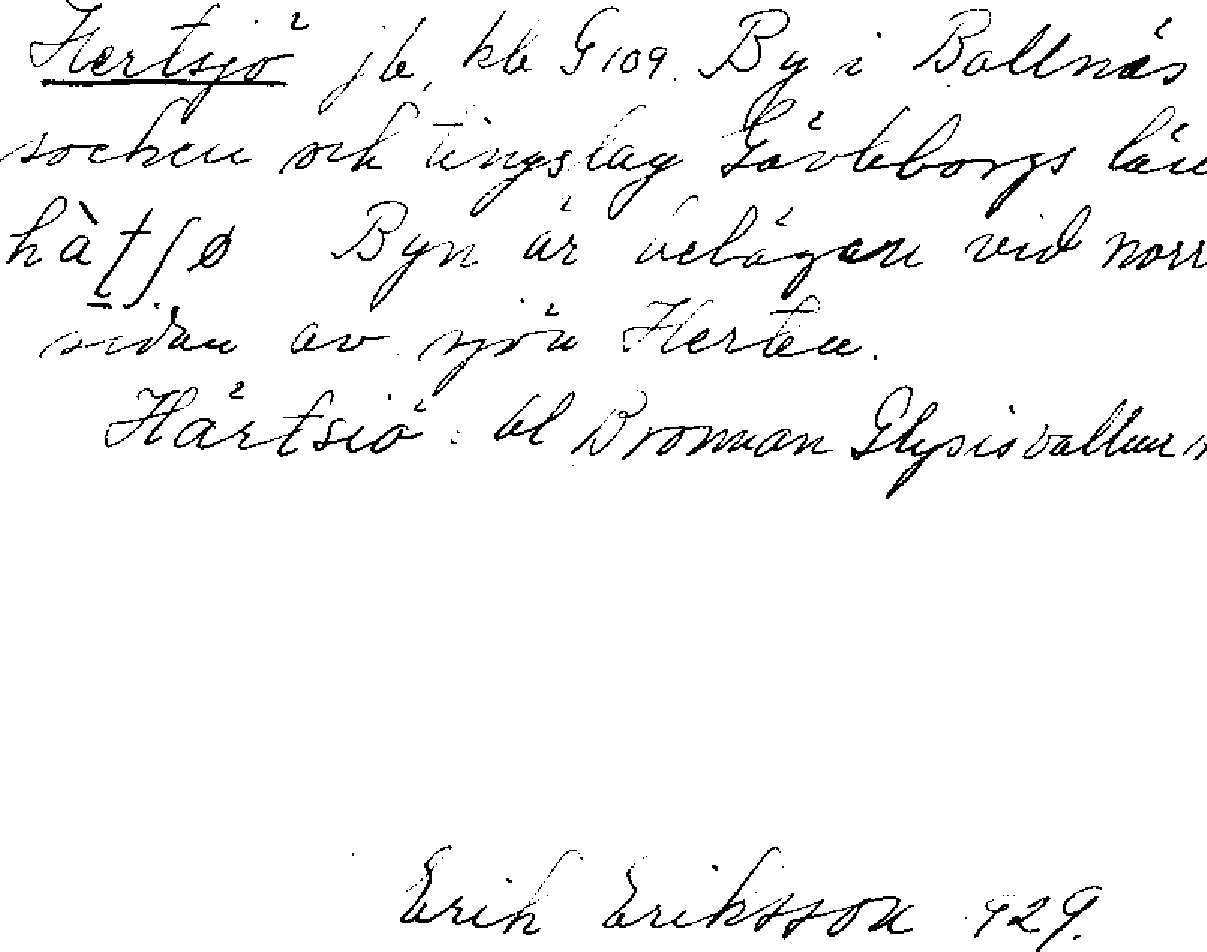 Hertsjö jb, kb G 109. By i Bollnäs
socken och tingslag Gävleborgs län
hàtʃø Byn är belägen vid norr
sidan av sjön Herten.
Härtsiö: bl Broman Glysisvallur
Erik Eriksson 929.